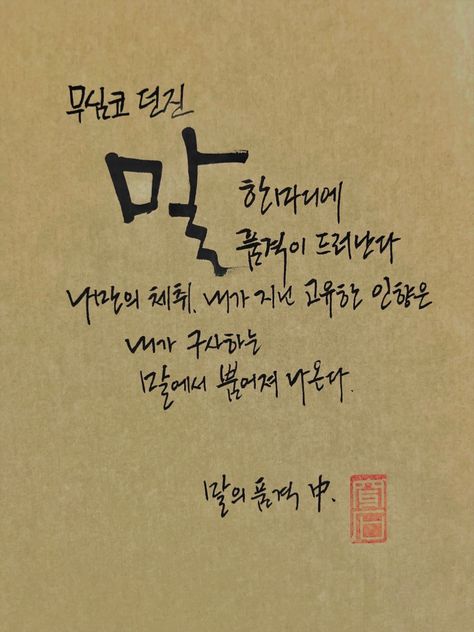 무심코 던진
말 한마디에
품격이 드러난다
나만의 체취, 내가 지닌 고유한 인향은
내가 구사하는
말에서 뿜어져 나온다.
말의 품격 中.